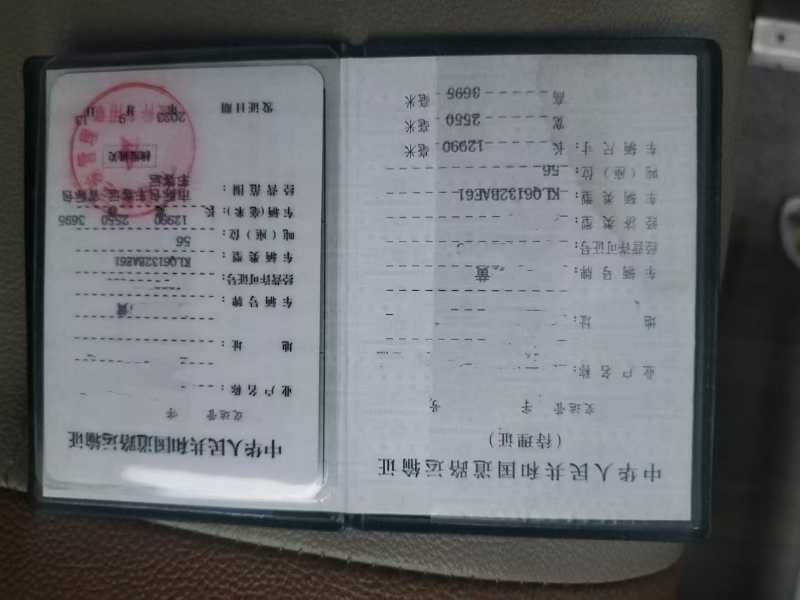 中华人民共和国道路运输证
(待理证)
交运管 字 号
业户名称:
地 址:
车辆号牌: 黄
经营许可证号
经济类型:
车辆类型: KLQ6132BAE61
吨(座)位: 56
车辆尺寸: 长 12990 毫米
宽 2550 毫米
高 3695 毫米
中华人民共和国道路运输证
交运管 字
业户名称:
地 址:
车辆号牌: 黄
经营许可证号:
车辆类型: KLQ6132BAE61
吨(座)位: 56
车辆(毫米): 长 12990 2550 3695
经营范围: 市际包车客运;省际包
车客运
核发机关
发证日期 2023 年 9 月 13 日